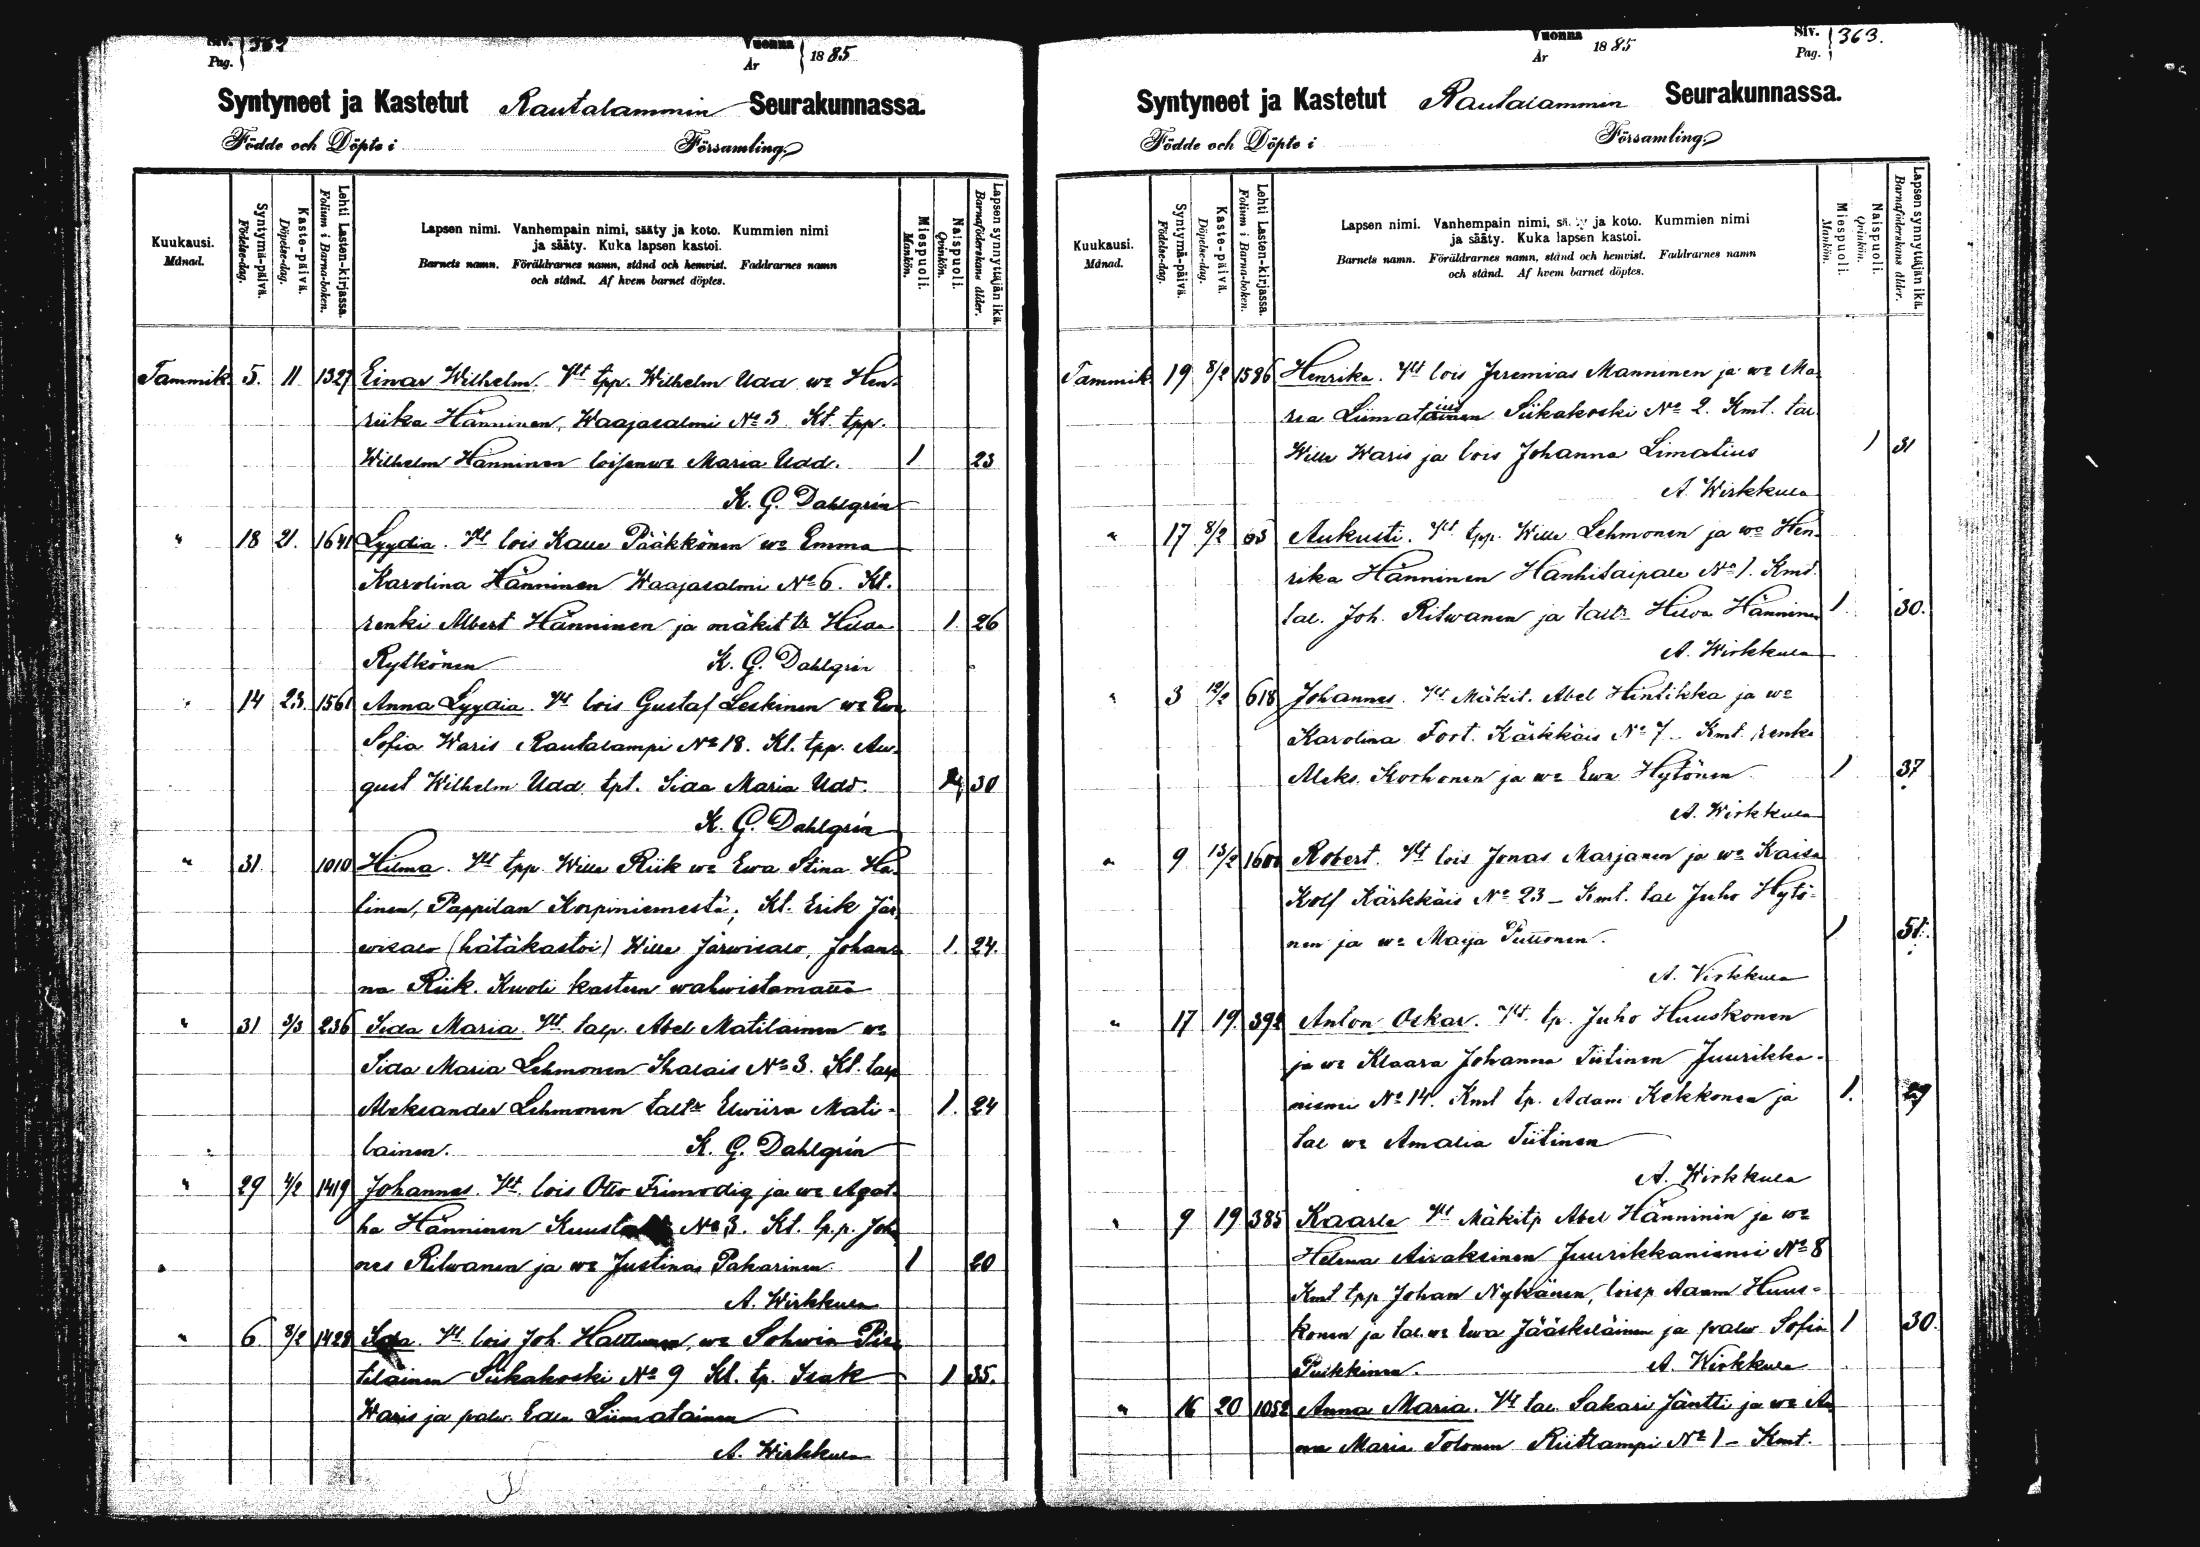 Siv. Pag. 362
Vuonna År 1885
Syntyneet ja Kastetut Rautalammin Seurakunnassa.
Födde och Döpte i Församling.
Kuukausi. Månad.
Syntymä-päivä. Födelse-dag.
Kaste-päivä. Döpelse-dag.
Lehti Lasten-kirjassa. Folium i Barna-boken.
Lapsen nimi. Vanhempain nimi, sääty ja koto. Kummien nimi
ja sääty. Kuka lapsen kastoi.
Barnets namn. Föräldrarnes namn, stånd och hemvist. Faddrarnes namn
och stånd. Af hvem barnet döptes.
Miespuoli. Mankön.
Naispuoli. Qvinkön.
Lapsen synnyttäjän ikä. Barnaföderskans ålder.
Tammik. 5. 11 1327 Einar Wilhelm. Vt tpp. Wilhelm Udd wo Hen-
riika Hänninen, Waajasalmi No 3 Kt. tpp.
Wilhelm Hänninen loisenwo Maria Udd. 1 23
K. G. Dahlgrén
" 18 21. 1641 Lyydia. Vt lois Kalle Pääkkönen wo Emma
Karolina Hänninen Waajasalmi No 6. Kt.
renki Albert Hänninen ja mäkit tr Hilda 1. 26
Rytkönen K. G. Dahlgrén
" 14 23. 1561 Anna Lyydia. Vt lois Gustaf Leskinen wo Ewa
Sofia Waris Rautalampi No 18. Kt. tpp. Au-
gust Wilhelm Udd tpt. Iida Maria Udd. 30
K. G. Dahlgrén
" 31 1010 Hilma. Vt tpp Wille Riik wo Ewa Stina Ha-
linen, Pappilan Korpiniemestä; Kt. Erik Jär-
wisalo (hätäkastoi) Wille Järwisalo, Johan- 1. 24.
na Riik. Kuoli kasteen wahwistamatta
" 31 3/3 236 Iida Maria Vt. talp. Abel Matilainen wo
Iida Maria Lehmonen Shalais No 3. Kt. talp
Aleksander Lehmonen taltr Elwiira Mati- 1. 24
lainen. K. G. Dahlgrén
" 29 4/2 1419 Johannes. Vt. lois Otto Frimodig ja wo Agat-
ha Hänninen No 3. Kt. t.p. Joh
nes Ritwanen ja wo Justina Paharinen 1 20
A. Wirkkula
" 6 8/2 1428 Iida. Vt lois Joh. Halttunen, wo Sohwia Pie-
tiläinen Siikakoski No 9 Kt. tp. Isak 1 35.
Waris ja palw. Eden Liimatainen
A. Wirkkula
Vuonna År 1885
Siv. Pag. 363.
Syntyneet ja Kastetut Rautalammin Seurakunnassa.
Födde och Döpte i Församling.
Kuukausi. Månad.
Syntymä-päivä. Födelse-dag.
Kaste-päivä. Döpelse-dag.
Lehti Lasten-kirjassa. Folium i Barna-boken.
Lapsen nimi. Vanhempain nimi, sääty ja koto. Kummien nimi
ja sääty. Kuka lapsen kastoi.
Barnets namn. Föräldrarnes namn, stånd och hemvist. Faddrarnes namn
och stånd. Af hvem barnet döptes.
Miespuoli. Mankön.
Naispuoli. Qvinkön.
Lapsen synnyttäjän ikä. Barnaföderskans ålder.
Tammik 19 8/2 1586 Henrika. Vt lois Jeremias Manninen ja wo Ma-
ria Liimatainen Siikakoski No 2. Kmt. tal.
Wille Waris ja lois Johanna Limatius 1 31
A. Wirkkula
" 17 8/2 65 Aukusti. Vt tpp. Wille Lehmonen ja wo Hen-
rika Hänninen Hanhitaipale No 1. Kmt.
tal. Joh. Ritwanen ja taltr Hilda Hänninen 1 30.
A. Wirkkula
" 3 12/2 618 Johannes. Vt Mäkit. Abel Hintikka ja wo
Karolina Fort. Kärkkäis No 7 Kmt renki
Aleks. Korhonen ja wo Ewa Hytönen 1 37
A. Wirkkula
" 9 13/2 1600 Robert. Vt lois Jonas Marjanen ja wo Kaisa
Kolf Kärkkäis No 23 – Kmt. tal Juho Hytö-
nen ja wo Maija Puttonen. 1 51.
A. Virkkula
" 17 19. 392 Anton Oskar. Vt. tp. Juho Huuskonen
ja wo Klaara Johanna Tiitinen Juurikka-
niemi No 14. Kmt tp. Adam Kekkonen ja 1. 29
tal wo Amalia Tiitinen
A. Wirkkula
" 9 19 385 Kaarle Vt Mäkitp Abel Hänninin ja wo
Helena Airaksinen Juurikkaniemi No 8
Kmt tpp Johan Nykänen, loisp Adam Huus-
konen ja tal.wo Ewa Jääskeläinen ja palw Sofia 1 30.
Puikkinen. A. Wirkkula
" 16 20 1052 Anna Maria. Vt tal. Sakari Jäntti ja wo An
na Maria Tolonen Riitlampi No 1 – Kmt.